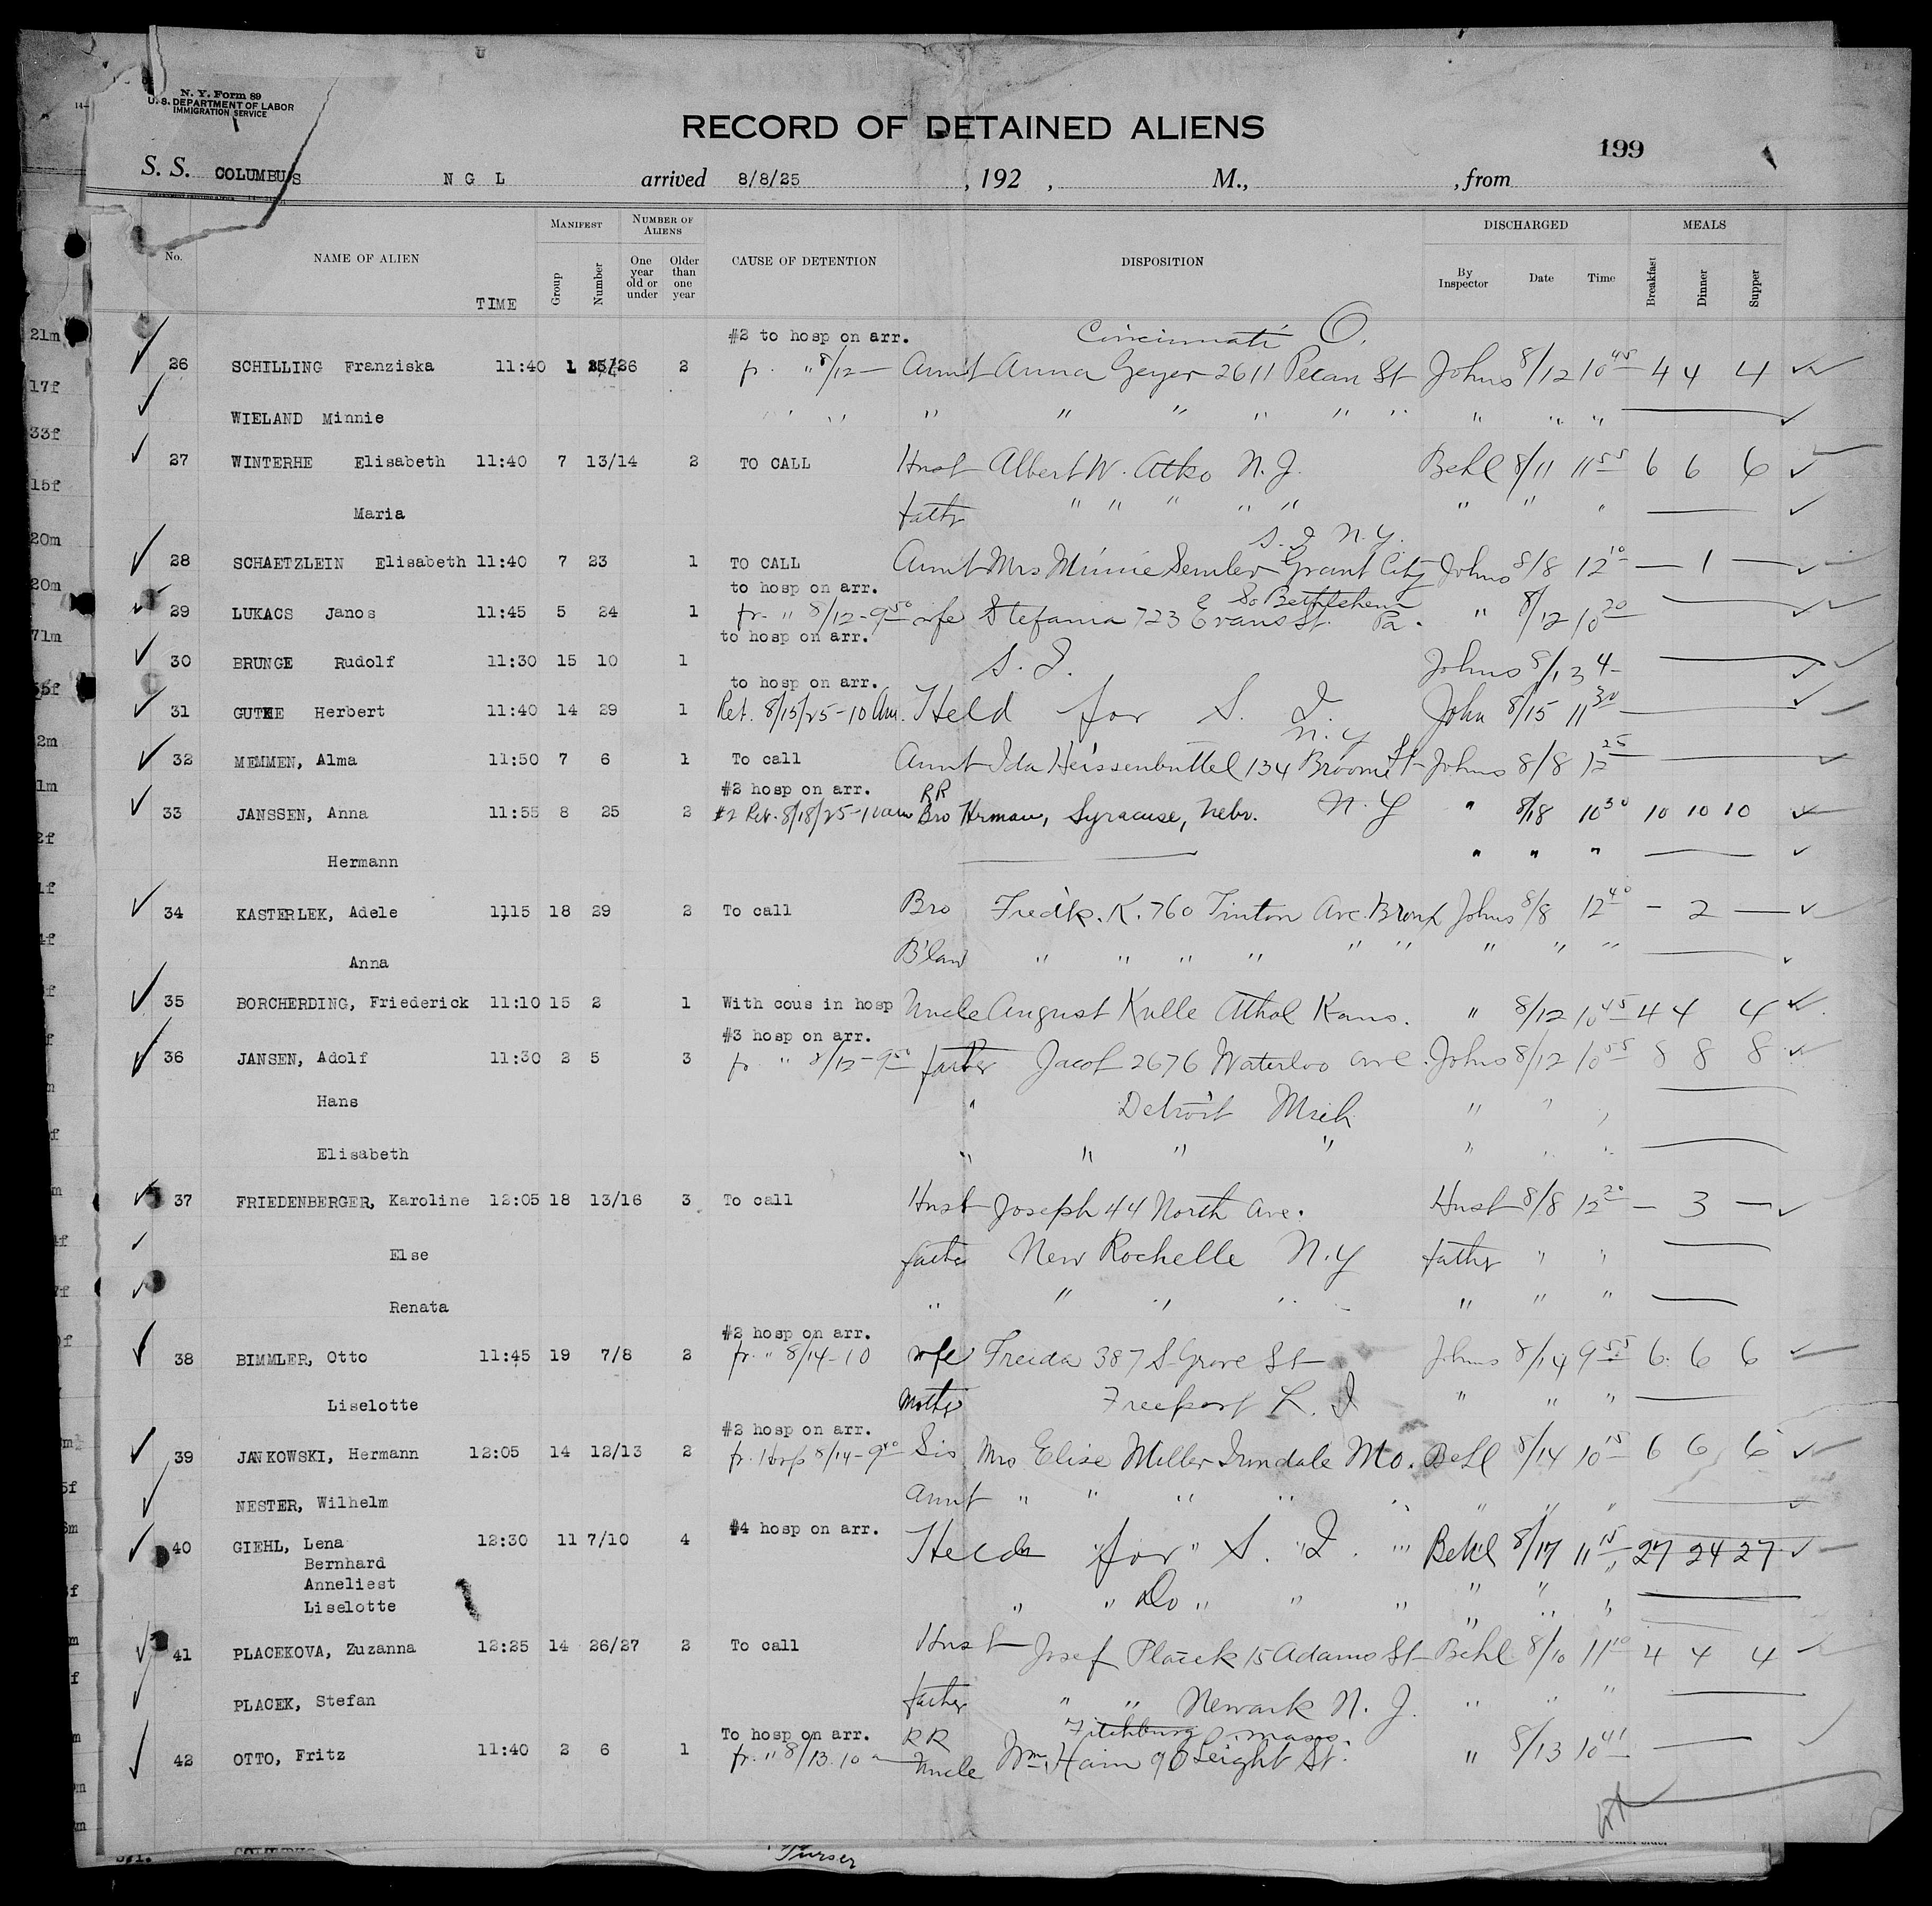 N. Y. Form 89
U. S. DEPARTMENT OF LABOR
IMMIGRATION SERVICE
RECORD OF DETAINED ALIENS
199
S. S. COLUMBUS N G L arrived 8/8/25 , 192 , M., , from
No. NAME OF ALIEN TIME MANIFEST Group Number NUMBER OF ALIENS One year old or under Older than one year CAUSE OF DETENTION DISPOSITION DISCHARGED By Inspector Date Time MEALS Breakfast Dinner Supper
#2 to hosp on arr. Cincinnati O.
26 SCHILLING Franziska 11:40 1 25/26 2 fr. " 8/12 — Aunt Anna Geyer 2611 Pecan St Johns 8/12 10 45 4 4 4
WIELAND Minnie " " " " " " " " "
27 WINTERHE Elisabeth 11:40 7 13/14 2 TO CALL Husb Albert W. Atko N. J. Behl 8/11 11 55 6 6 6
Maria father " " " " " " " "
S. I. N. Y.
28 SCHAETZLEIN Elisabeth 11:40 7 23 1 TO CALL Aunt Mrs Minnie Semler Grant City Johns 8/8 12 10 — 1 —
to hosp on arr. So Bethlehem
29 LUKACS Janos 11:45 5 24 1 fr. " 8/12-9 50 wfe Stefania 723 Evans St. Pa. " 8/12 10 20
to hosp on arr.
30 BRUNGE Rudolf 11:30 15 10 1 S. I. Johns 8/13 4-
to hosp on arr.
31 GUTHE Herbert 11:40 14 29 1 Ret. 8/15/25-10 Am. Held for S. I. John 8/15 11 30
N. Y
32 MEMMEN, Alma 11:50 7 6 1 To call Aunt Ida Heissenbuttel 134 Broome St Johns 8/8 12 25
#2 hosp on arr. RR N. Y
33 JANSSEN, Anna 11:55 8 25 2 #2 Ret. 8/18/25-10am Bro Herman, Syracuse, Nebr. " 8/18 10 30 10 10 10
Hermann " " "
34 KASTERLEK, Adele 1115 18 29 2 To call Bro Fredk. K. 760 Tinton Ave. Bronx Johns 8/8 12 40 - 2 —
Anna B'law " " " " " " " " "
35 BORCHERDING, Friederick 11:10 15 2 1 With cous in hosp Uncle August Kulle Athol Kans. " 8/12 10 45 4 4 4
#3 hosp on arr.
36 JANSEN, Adolf 11:30 2 5 3 fr " 8/12-9 50 father Jacob 2676 Waterloo Ave. Johns 8/12 10 55 8 8 8
Hans " Detroit Mich " " "
Elisabeth " " " " " " "
37 FRIEDENBERGER, Karoline 12:05 18 13/16 3 To call Husb Joseph 44 North Ave. Husb 8/8 12 20 — 3 —
Else father New Rochelle N.Y father " "
Renata " " " " " " "
#2 hosp on arr.
38 BIMMLER, Otto 11:45 19 7/8 2 fr. " 8/14-10 wfe Freida 387 S. Grove St Johns 8/14 9 55 6 6 6
Liselotte mother Freeport L. I " " "
#2 hosp on arr.
39 JANKOWSKI, Hermann 12:05 14 12/13 2 fr. Hosp 8/14-9 40 Sis Mrs Elise Miller Mo. Behl 8/14 10 15 6 6 6
NESTER, Wilhelm Aunt " " " " " " " "
#4 hosp on arr.
40 GIEHL, Lena 12:30 11 7/10 4 Held for S. I. Behl 8/17 11 15 27 24 27
Bernhard
Anneliest
Liselotte " " Do " " " " " "
41 PLACEKOVA, Zuzanna 12:25 14 26/27 2 To call Husb Josef Placek 15 Adams St Behl 8/10 11 10 4 4 4
PLACEK, Stefan father " " Newark N. J. " " "
To hosp on arr. RR Fitchburg Mass.
42 OTTO, Fritz 11:40 2 6 1 fr. " 8/13. 10 Uncle Wm. Hain 90 Leight St. " 8/13 10 41
Purser